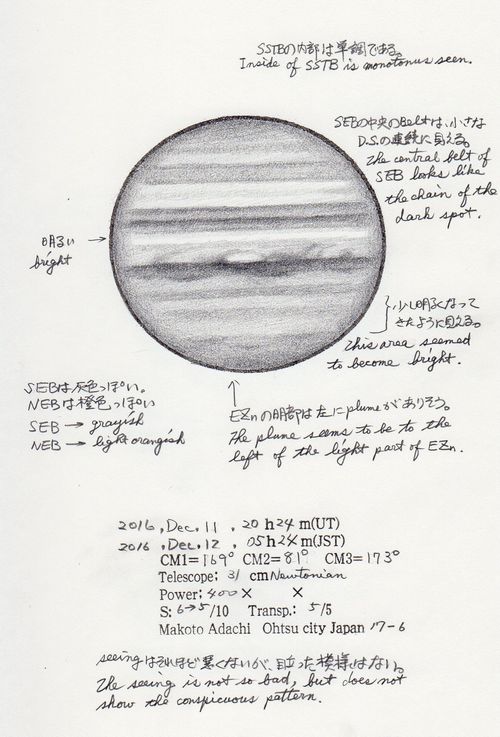 SSTBの内部は単調である。
Inside of SSTB is monotonus seen.
SEBの中央のBeltは、小さな
D.S.の連続に見える。
The central belt of
SEB looks like
the chain of the
dark spot.
明るい
bright
少し明るくなって
きたように見える。
This area seemed
to become bright.
SEBは灰色っぽい。
NEBは橙色っぽい
SEB → grayish
NEB → light orangish
EZnの明部は左にplumeがありそう。
The plume seems to be to the
left of the light part of EZn.
2016, Dec. 11, 20 h 24 m(UT)
2016, Dec. 12, 05 h 24 m(JST)
CM1= 169° CM2= 81° CM3= 173°
Telescope: 31 cm Newtonian
Power: 400 × ×
S: 6→5/10 Transp.: 5/5
Makoto Adachi Ohtsu city Japan 17-6
seeingはそれほど悪くないが、目立った模様はない。
The seeing is not so bad, but does not
show the conspicuous pattern.